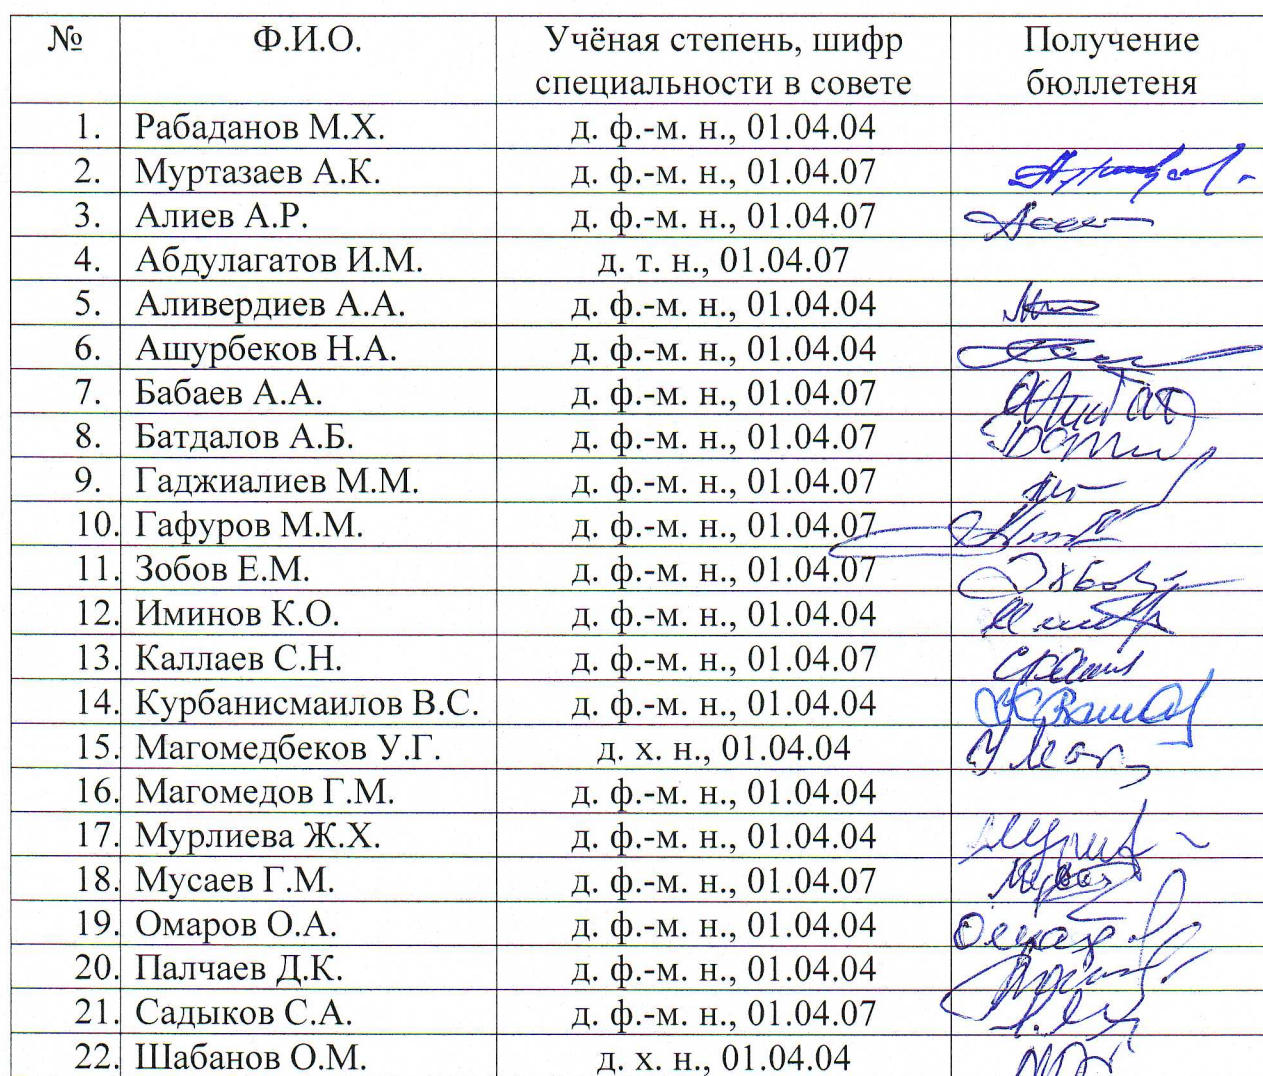 № Ф.И.О. Учёная степень, шифр Получение
специальности в совете бюллетеня
1. Рабаданов М.Х. д. ф.-м. н., 01.04.04
2. Муртазаев А.К. д. ф.-м. н., 01.04.07
3. Алиев А.Р. д. ф.-м. н., 01.04.07
4. Абдулагатов И.М. д. т. н., 01.04.07
5. Аливердиев А.А. д. ф.-м. н., 01.04.04
6. Ашурбеков Н.А. д. ф.-м. н., 01.04.04
7. Бабаев А.А. д. ф.-м. н., 01.04.07
8. Батдалов А.Б. д. ф.-м. н., 01.04.07
9. Гаджиалиев М.М. д. ф.-м. н., 01.04.07
10. Гафуров М.М. д. ф.-м. н., 01.04.07
11. Зобов Е.М. д. ф.-м. н., 01.04.07
12. Иминов К.О. д. ф.-м. н., 01.04.04
13. Каллаев С.Н. д. ф.-м. н., 01.04.07
14. Курбанисмаилов В.С. д. ф.-м. н., 01.04.04
15. Магомедбеков У.Г. д. х. н., 01.04.04
16. Магомедов Г.М. д. ф.-м. н., 01.04.04
17. Мурлиева Ж.Х. д. ф.-м. н., 01.04.04
18. Мусаев Г.М. д. ф.-м. н., 01.04.07
19. Омаров О.А. д. ф.-м. н., 01.04.04
20. Палчаев Д.К. д. ф.-м. н., 01.04.04
21. Садыков С.А. д. ф.-м. н., 01.04.07
22. Шабанов О.М. д. х. н., 01.04.04